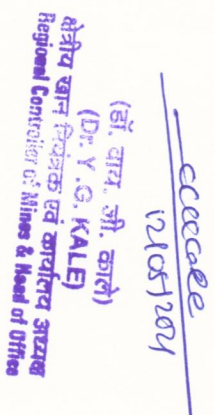 12/05/2021
(डॉ. वाय. जी. काले)
(Dr. Y. G. KALE)
क्षेत्रीय खान नियंत्रक एवं कार्यालय अध्यक्ष
Regional Controller of Mines & Head of Office